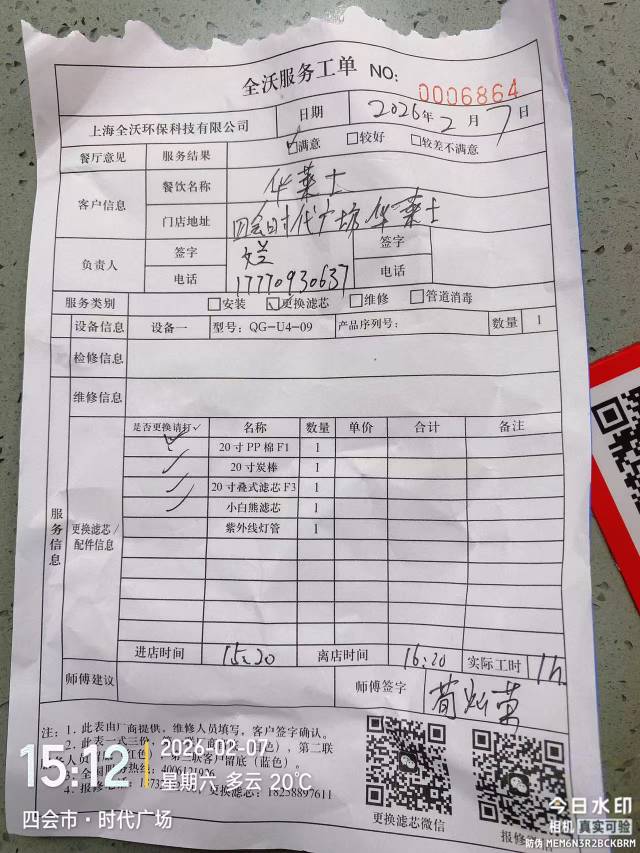 全沃服务工单 NO: 0006864
上海全沃环保科技有限公司 日期 2026年2月7日
餐厅意见 服务结果 ☑满意 □较好 □较差不满意
客户信息 餐饮名称 华莱士
门店地址 四会时代广场华莱士
负责人 签字 签字
电话 17770930637 电话
服务类别 □安装 ☑更换滤芯 □维修 □管道消毒
设备信息 设备一 型号: QG-U4-09 产品序列号: 数量 1
检修信息
维修信息
服务信息 更换滤芯/配件信息
是否更换请打✓ 名称 数量 单价 合计 备注
✓ 20寸PP棉F1 1
✓ 20寸炭棒 1
✓ 20寸叠式滤芯F3 1
✓ 小白熊滤芯 1
紫外线灯管 1
进店时间 15:20 离店时间 16:20 实际工时 1h
师傅建议 师傅签字
注: 1. 此表由厂商提供, 维修人员填写, 客户签字确认。
2. 此表一式三份, 第二联
客户留底(蓝色)。
4. 报修 更换滤芯: 18258897611
更换滤芯微信 报修
15:12 2026-02-07
星期六 多云 20℃
四会市·时代广场
今日水印
相机 真实可验
防伪 MEM6N3R2BCKBRM